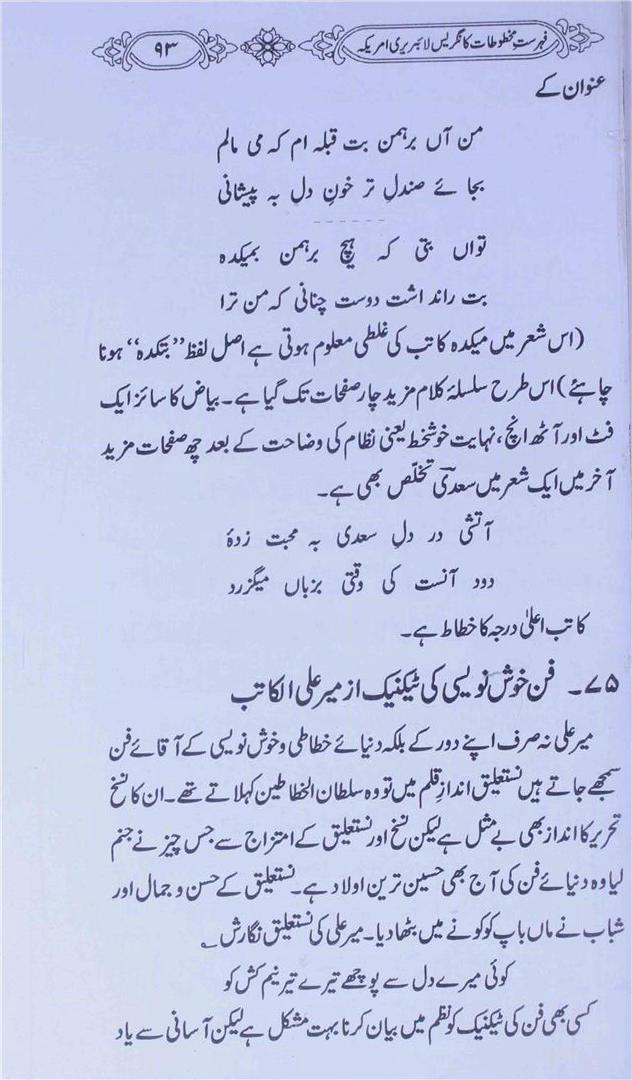 فہرستِ مخطوطات کانگریس لائبریری امریکہ
۹۳
عنوان کے
من آں برہمن بت قبلہ ام کہ می مالم
بجائے صندلِ تر خونِ دل بہ پیشانی
تواں بتی کہ ہیچ برہمن بمیکدہ
بت راند اشت دوست چنانی کہ من ترا
(اس شعر میں میکدہ کاتب کی غلطی معلوم ہوتی ہے اصل لفظ ”بتکدہ“ ہونا
چاہئے) اس طرح سلسلۂ کلام مزید چار صفحات تک گیا ہے۔ بیاض کا سائز ایک
فٹ اور آٹھ انچ، نہایت خوشخط یعنی نظام کی وضاحت کے بعد چھ صفحات مزید
آخر میں ایک شعر میں سعدیؔ تخلّص بھی ہے۔
آتشی در دلِ سعدی بہ محبت زدۂ
دود آنست کی وقتی بزباں میگزرد
کاتب اعلیٰ درجہ کا خطاط ہے۔
۷۵۔ فن خوش نویسی کی ٹیکنیک از میر علی الکاتب
میر علی نہ صرف اپنے دور کے بلکہ دنیائے خطاطی و خوش نویسی کے آقائے فن
سمجھے جاتے ہیں نستعلیق اندازِ قلم میں تو وہ سلطان الخطاطین کہلاتے تھے۔ ان کا نسخ
تحریر کا انداز بھی بے مثل ہے لیکن نسخ اور نستعلیق کے امتزاج سے جس چیز نے جنم
لیا وہ دنیائے فن کی آج بھی حسین ترین اولاد ہے۔ نستعلیق کے حسن و جمال اور
شباب نے ماں باپ کو کونے میں بٹھا دیا۔ میر علی کی نستعلیق نگارش ؎
کوئی میرے دل سے پوچھے تیرے تیر نیم کش کو
کسی بھی فن کی ٹیکنیک کو نظم میں بیان کرنا بہت مشکل ہے لیکن آسانی سے یاد